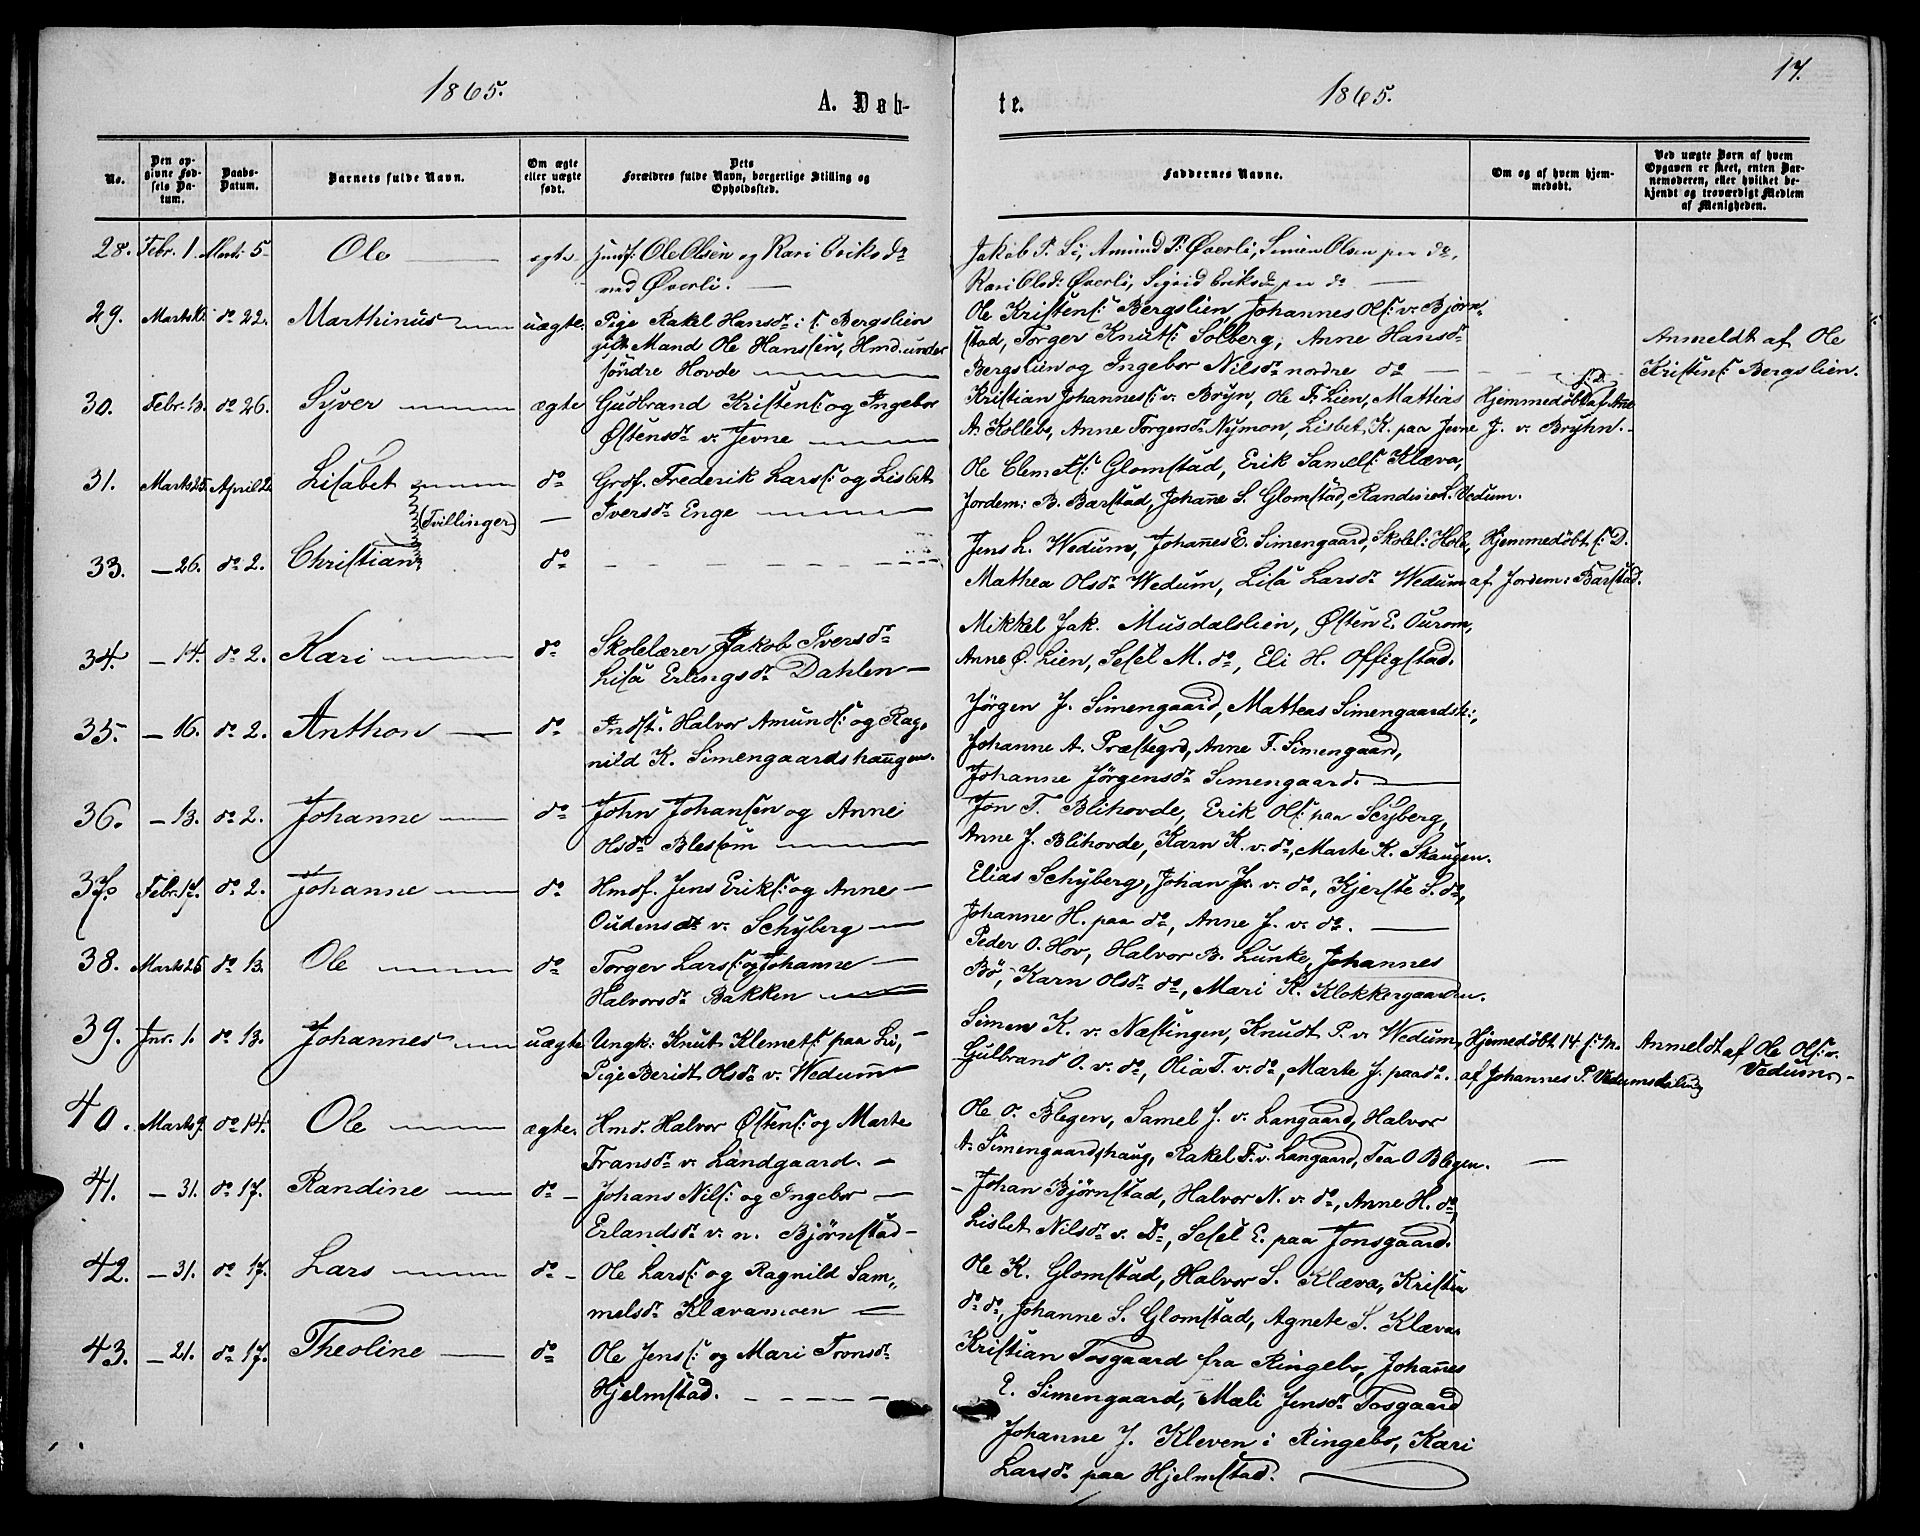 17.
1865.
A. Døb-
te.
1865.
No.
Den op-
givne Fød-
sels Da-
tum.
Daabs-
Datum.
Barnets fulde Navn.
Om ægte
eller uægte
født.
Dets
Forældres fulde Navn, borgerlige Stilling og
Opholdssted.
Faddernes Navne.
Om og af hvem hjem-
medøbt.
Ved uægte Børn af hvem
Opgaven er skeet, enten Bar-
nemoderen, eller hvilket be-
kjendt og troværdigt Medlem
af Menigheden.
28. Febr. 1. Marti 5. Ole egte Husf: Ole Olsen og Kari Eriksdr
ved Øverli.
Jakob P. Li, Amund P: Øverli, Simen Olsen paa do,
Kari Olsd: Øverli, Sigrid Eriksd paa do
29. Marts 10. do 22. Marthinus uægte. Pige Rakel Hansdr i s: Bergslien
gift Mand Ole Hanssen, Hmd. under
søndre Hovde
Ole Kristens: Bergslien, Johannes Ols: v. Bjørn-
stad, Torger Knuts: Solberg, Anne Hansdr
Bergslien og Ingebor Nilsdr nordre do
Anmeldt af Ole
Kristens: Bergslien.
30. Febr. 13. do 26. Syver ægte Gudbrand Kristens: og Ingebor
Østensdr v. Jevne
Kristian Johanness: v. Bryn, Ole F. Lien, Mattias
A. Kollebs, Anne Torgersdr Nymon, Lisbet K. paa Jevne
s: D.
Hjemmedøbt af Anne
J. v. Bryhn.
31. Marts 25. April 2. Lisabet do Grdf. Frederik Larss: og Lisbet
(Tvillinger)
Iversdr Enge
Ole Clemets: Glomstad, Erik Samels: Klæva,
Jordem: B. Barstad, Johane S. Glomstad, Randine L. Vedum.
33. — 26. do 2. Christian do
Jens L. Wedum, Johanes E. Simengaard, Skolel: Hole,
Mathea Olsdr Wedum, Lisa Larsdr Wedum
Hjemmedøbt s: D.
af Jordem: Barstad.
34. — 14. do 2. Kari do Skolelærer Jakob Iversdr
Lisa Erlingsdr Dahlen
Mikkel Jak. Musdalslien, Østen E. Ourom,
Anne Ø. Lien, Sesel M. do, Eli H. Offigstad.
35. — 16. do 2. Anthon do Indst. Halvor Amunds: og Rag-
nild K. Simengaardshaugen.
Jørgen J. Simengaard, Matteas Simengaardsh:,
Johanne A. Præstegrd, Anne F. Simengaard,
Johanne Jørgensdr Simengaard.
36. — 13. do 2. Johanne do John Johansen og Anne
Olsdr Blessom
Jon T. Blihovde, Erik Ols: paa Scyberg,
Anne J. Blihovde, Karn K. v. do, Marte K. Skaugen.
37. Febr. 17. do 2. Johanne do Hmdf. Jens Eriks: og Anne
Oudensdr v. Schyberg
Elias Schyberg, Johan J. v. do, Kjerste S. do,
Johanne H. paa do, Anne J. v. do.
38. Marts 25 do 13. Ole do Torger Larss: og Johanne
Halvorsdr Bakken
Peder O. Hov, Halvor B. Lunke, Johannes
Bø, Karn Olsdr do, Mari K. Klokkergaarden.
39. Jnr. 1. do 13. Johannes uægte Ungk: Knut Klemets: paa Li,
Pige Beridt Olsdr v. Wedum
Simen K. v. Næstingen, Knudt P. v. Wedum,
Gulbrand O. v. do, Olia T. v. do, Marte J. paa do.
Hjemedøbt 14 s: M.
af Johannes P. Vedumsdalen
Anmeldt af Ole Ols: v.
Vedum.
40. Marts 9. do 14. Ole ægte. Hmd. Halvor Østens: og Marte
Fransdr v. Landgaard.
Ole O. Blegen, Samel J. v. Langaard, Halvor
A. Simengaardshaug, Rakel F. v. Langaard, Tea O Blegen.
41. — 31. do 17. Randine do Johans Nils: og Ingebor
Erlandsdr v. n. Bjørnstad
Johan Bjørnstad, Halvor N. v. do, Anne H. do,
Lisbet Nilsdr v. Do, Sesel E. paa Jonsgaard.
42. — 31. do 17. Lars do Ole Larss: og Ragnild Sam-
melsdr Klævamoen
Ole K. Glomstad, Halvor S. Klæva, Kristen
do do, Johanne S. Glomstad, Agnete S. Klæva.
43. — 21. do 17. Theoline do Ole Jenss: og Mari Tronsdr
Hjelmstad.
Kristian Tosgaard fra Ringebo, Johanes
E. Simengaard, Mali Jensdr Tosgaard
Johanne J. Kleven i Ringebo, Kari
Larsdr paa Hjelmstad.